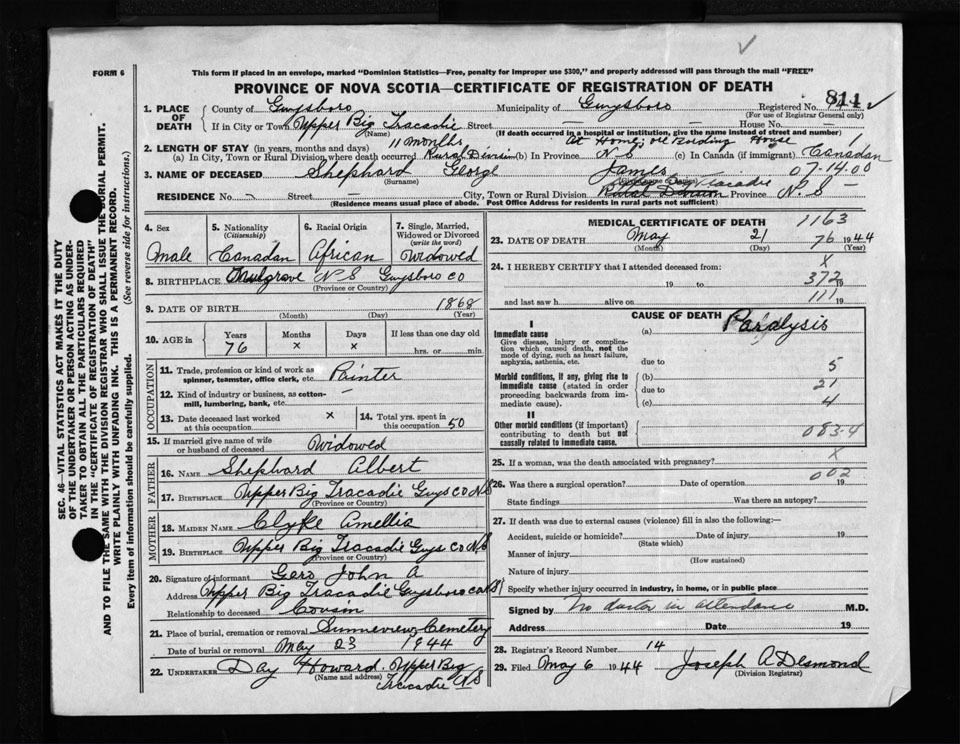 FORM 6
This form if placed in an envelope, marked "Dominion Statistics—Free, penalty for improper use $300," and properly addressed will pass through the mail "FREE"
PROVINCE OF NOVA SCOTIA—CERTIFICATE OF REGISTRATION OF DEATH
811
1. PLACE OF DEATH County of Guysboro Municipality of Guysboro Registered No.
(For use of Registrar General only)
If in City or Town Upper Big Tracadie Street — House No. —
(Name) (If death occurred in a hospital or institution, give the name instead of street and number)
11 months At Home, House
2. LENGTH OF STAY (in years, months and days)
(a) In City, Town or Rural Division where death occurred (b) In Province N S (c) In Canada (if immigrant) Canadan
3. NAME OF DECEASED Shephard George James 07-14-00
(Surname)
RESIDENCE No. — Street City, Town or Rural Division Tracadie Province N. S
(Residence means usual place of abode. Post Office Address for residents in rural parts not sufficient)
4. Sex
Male
5. Nationality (Citizenship)
Canadan
6. Racial Origin
African
7. Single, Married, Widowed or Divorced (write the word)
Widowed
8. BIRTHPLACE Mulgrave N S Guysboro CO
(Province or Country)
9. DATE OF BIRTH 1868
(Month) (Day) (Year)
10. AGE in Years Months Days If less than one day old
76 x x hrs. or min.
OCCUPATION
11. Trade, profession or kind of work as spinner, teamster, office clerk, etc. Painter
12. Kind of industry or business, as cotton-mill, lumbering, bank, etc. —
13. Date deceased last worked at this occupation x
14. Total yrs. spent in this occupation 50
15. If married give name of wife or husband of deceased Widowed
FATHER
16. NAME Shephard Albert
17. BIRTHPLACE Upper Big Tracadie Guys CO NS
(Province or Country)
MOTHER
18. MAIDEN NAME Clyke Amellia
19. BIRTHPLACE Upper Big Tracadie Guys CO N.S
(Province or Country)
20. Signature of informant Gero John A
Address Upper Big Tracadie Guysboro
Relationship to deceased Cousin
21. Place of burial, cremation or removal Sunneview Cemetery
Date of burial or removal May 23 1944
22. UNDERTAKER Day Howard. Upper Big
(Name and address)
Tracadie N S
MEDICAL CERTIFICATE OF DEATH
1163
23. DATE OF DEATH May 21 76 1944
(Month) (Day) (Year)
x
24. I HEREBY CERTIFY that I attended deceased from:
19 to 372 19
and last saw h alive on 111 19
CAUSE OF DEATH
I
Immediate cause
Give disease, injury or complication which caused death, not the mode of dying, such as heart failure, asphyxia, asthenia, etc.
(a) Paralysis
due to 5
Morbid conditions, if any, giving rise to immediate cause (stated in order proceeding backwards from immediate cause).
(b)
due to 21
(c) 4
II
Other morbid conditions (if important) contributing to death but not causally related to immediate cause.
083-4
25. If a woman, was the death associated with pregnancy? x
002
26. Was there a surgical operation? Date of operation 19
State findings Was there an autopsy?
27. If death was due to external causes (violence) fill in also the following:—
Accident, suicide or homicide? Date of injury 19
(State which)
Manner of injury
(How sustained)
Nature of injury
Specify whether injury occurred in industry, in home, or in public place
Signed by No doctor in attendance M.D.
Address Date 19
28. Registrar's Record Number 14
29. Filed May 6 1944 Joseph A Desmond
(Division Registrar)
SEC. 46—VITAL STATISTICS ACT MAKES IT THE DUTY
OF THE UNDERTAKER OR PERSON ACTING AS UNDER-
TAKER TO OBTAIN ALL THE PARTICULARS REQUIRED
IN THE "CERTIFICATE OF REGISTRATION OF DEATH"
AND TO FILE THE SAME WITH THE DIVISION REGISTRAR WHO SHALL ISSUE THE BURIAL PERMIT.
WRITE PLAINLY WITH UNFADING INK. THIS IS A PERMANENT RECORD.
Every item of information should be carefully supplied. (See reverse side for instructions.)